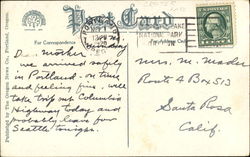 Post Card
For Correspondence
Dr. Mother
we arrived safely
in Portland - on time
and feeling fine, will
take trip out Columbia
Highway today and
probably leave for
Seattle tonight.
NATIONAL PARK
Mrs. M. Mader
Route 4 Box 513
Santa Rosa
Calif.
Published by The Oregon News Co., Portland, Oregon.